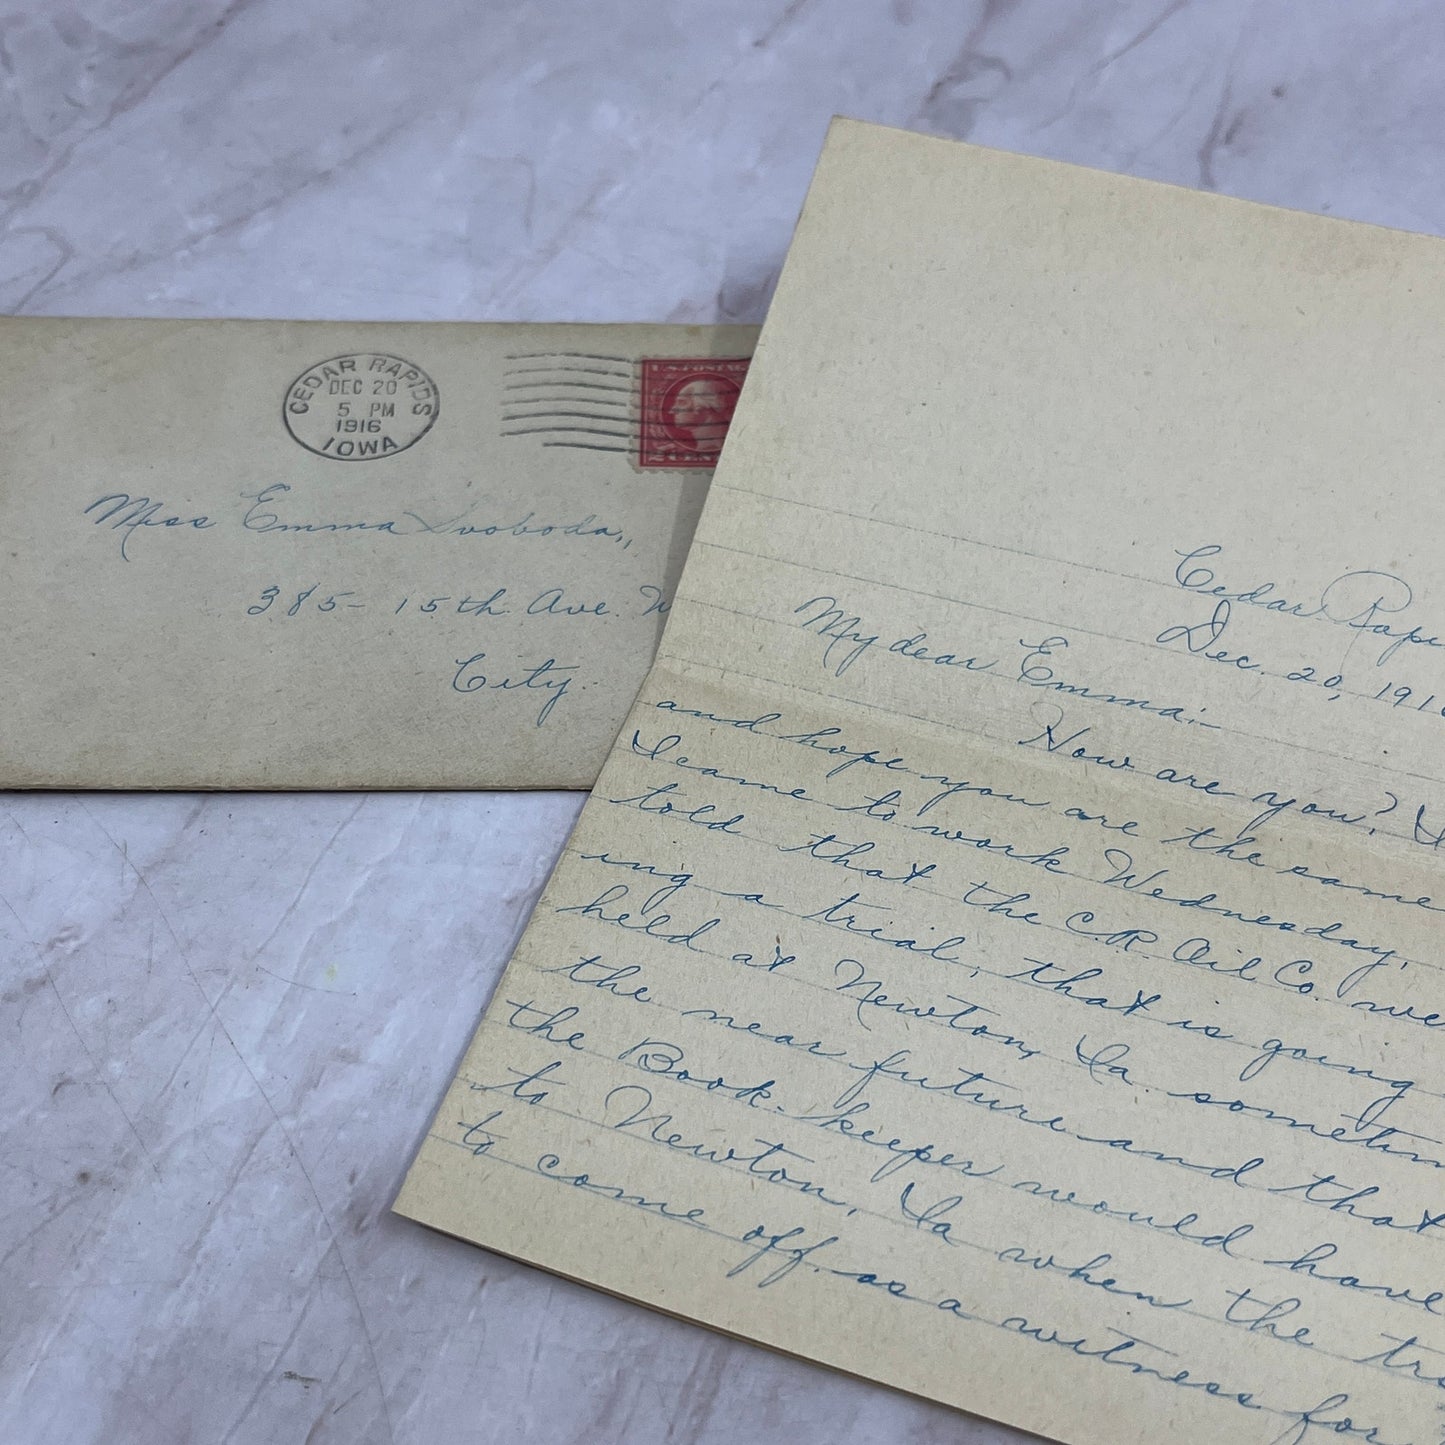 CEDAR RAPIDS
DEC 20
5 PM
1916
IOWA
U.S. POSTAG
Miss Emma Svoboda,
385- 15th Ave. W
City.
Cedar Rapi
Dec. 20, 191
My dear Emma:-
How are you? I
and hope you are the same
I came to work Wednesday,
told that the C.R. Oil Co. we
ing a trial, that is going
held at Newton, Ia. sometim
the near future and that
the Book-keeper would have
to Newton, Ia when the tri
to come off as a witness for